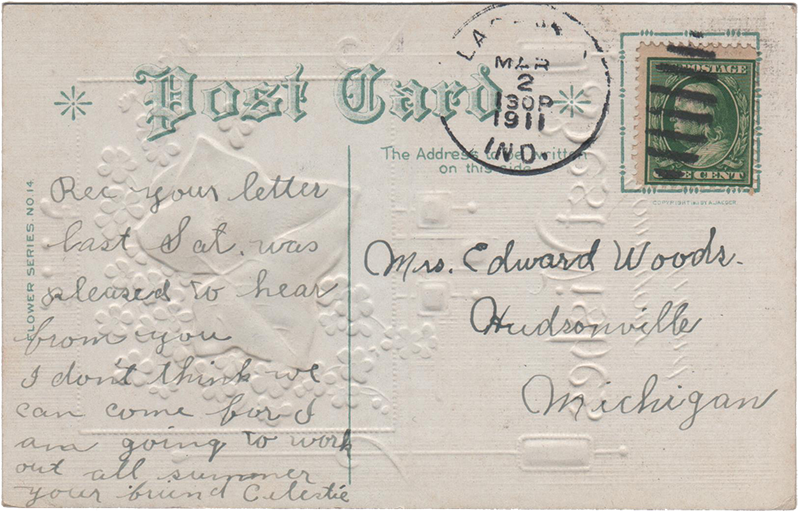 Post Card
MAR
2
130P
1911
IND.
POSTAGE
CENT
The Address to be written
on this side
FLOWER SERIES NO. 14
Rec your letter
last Sat. was
pleased to hear
from you
I don't think we
can come for I
am going to work
out all summer
your friend Celestie
Mrs. Edward Woods.
Hudsonville
Michigan